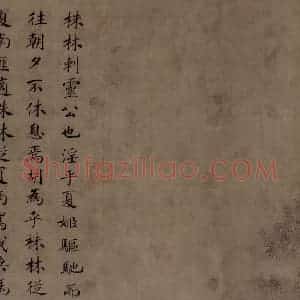 株林刺靈公也淫乎夏姬驅馳而
往朝夕不休息焉胡為乎株林從
夏南匪適株林從夏南駕我乘馬
Shufaziliao.com